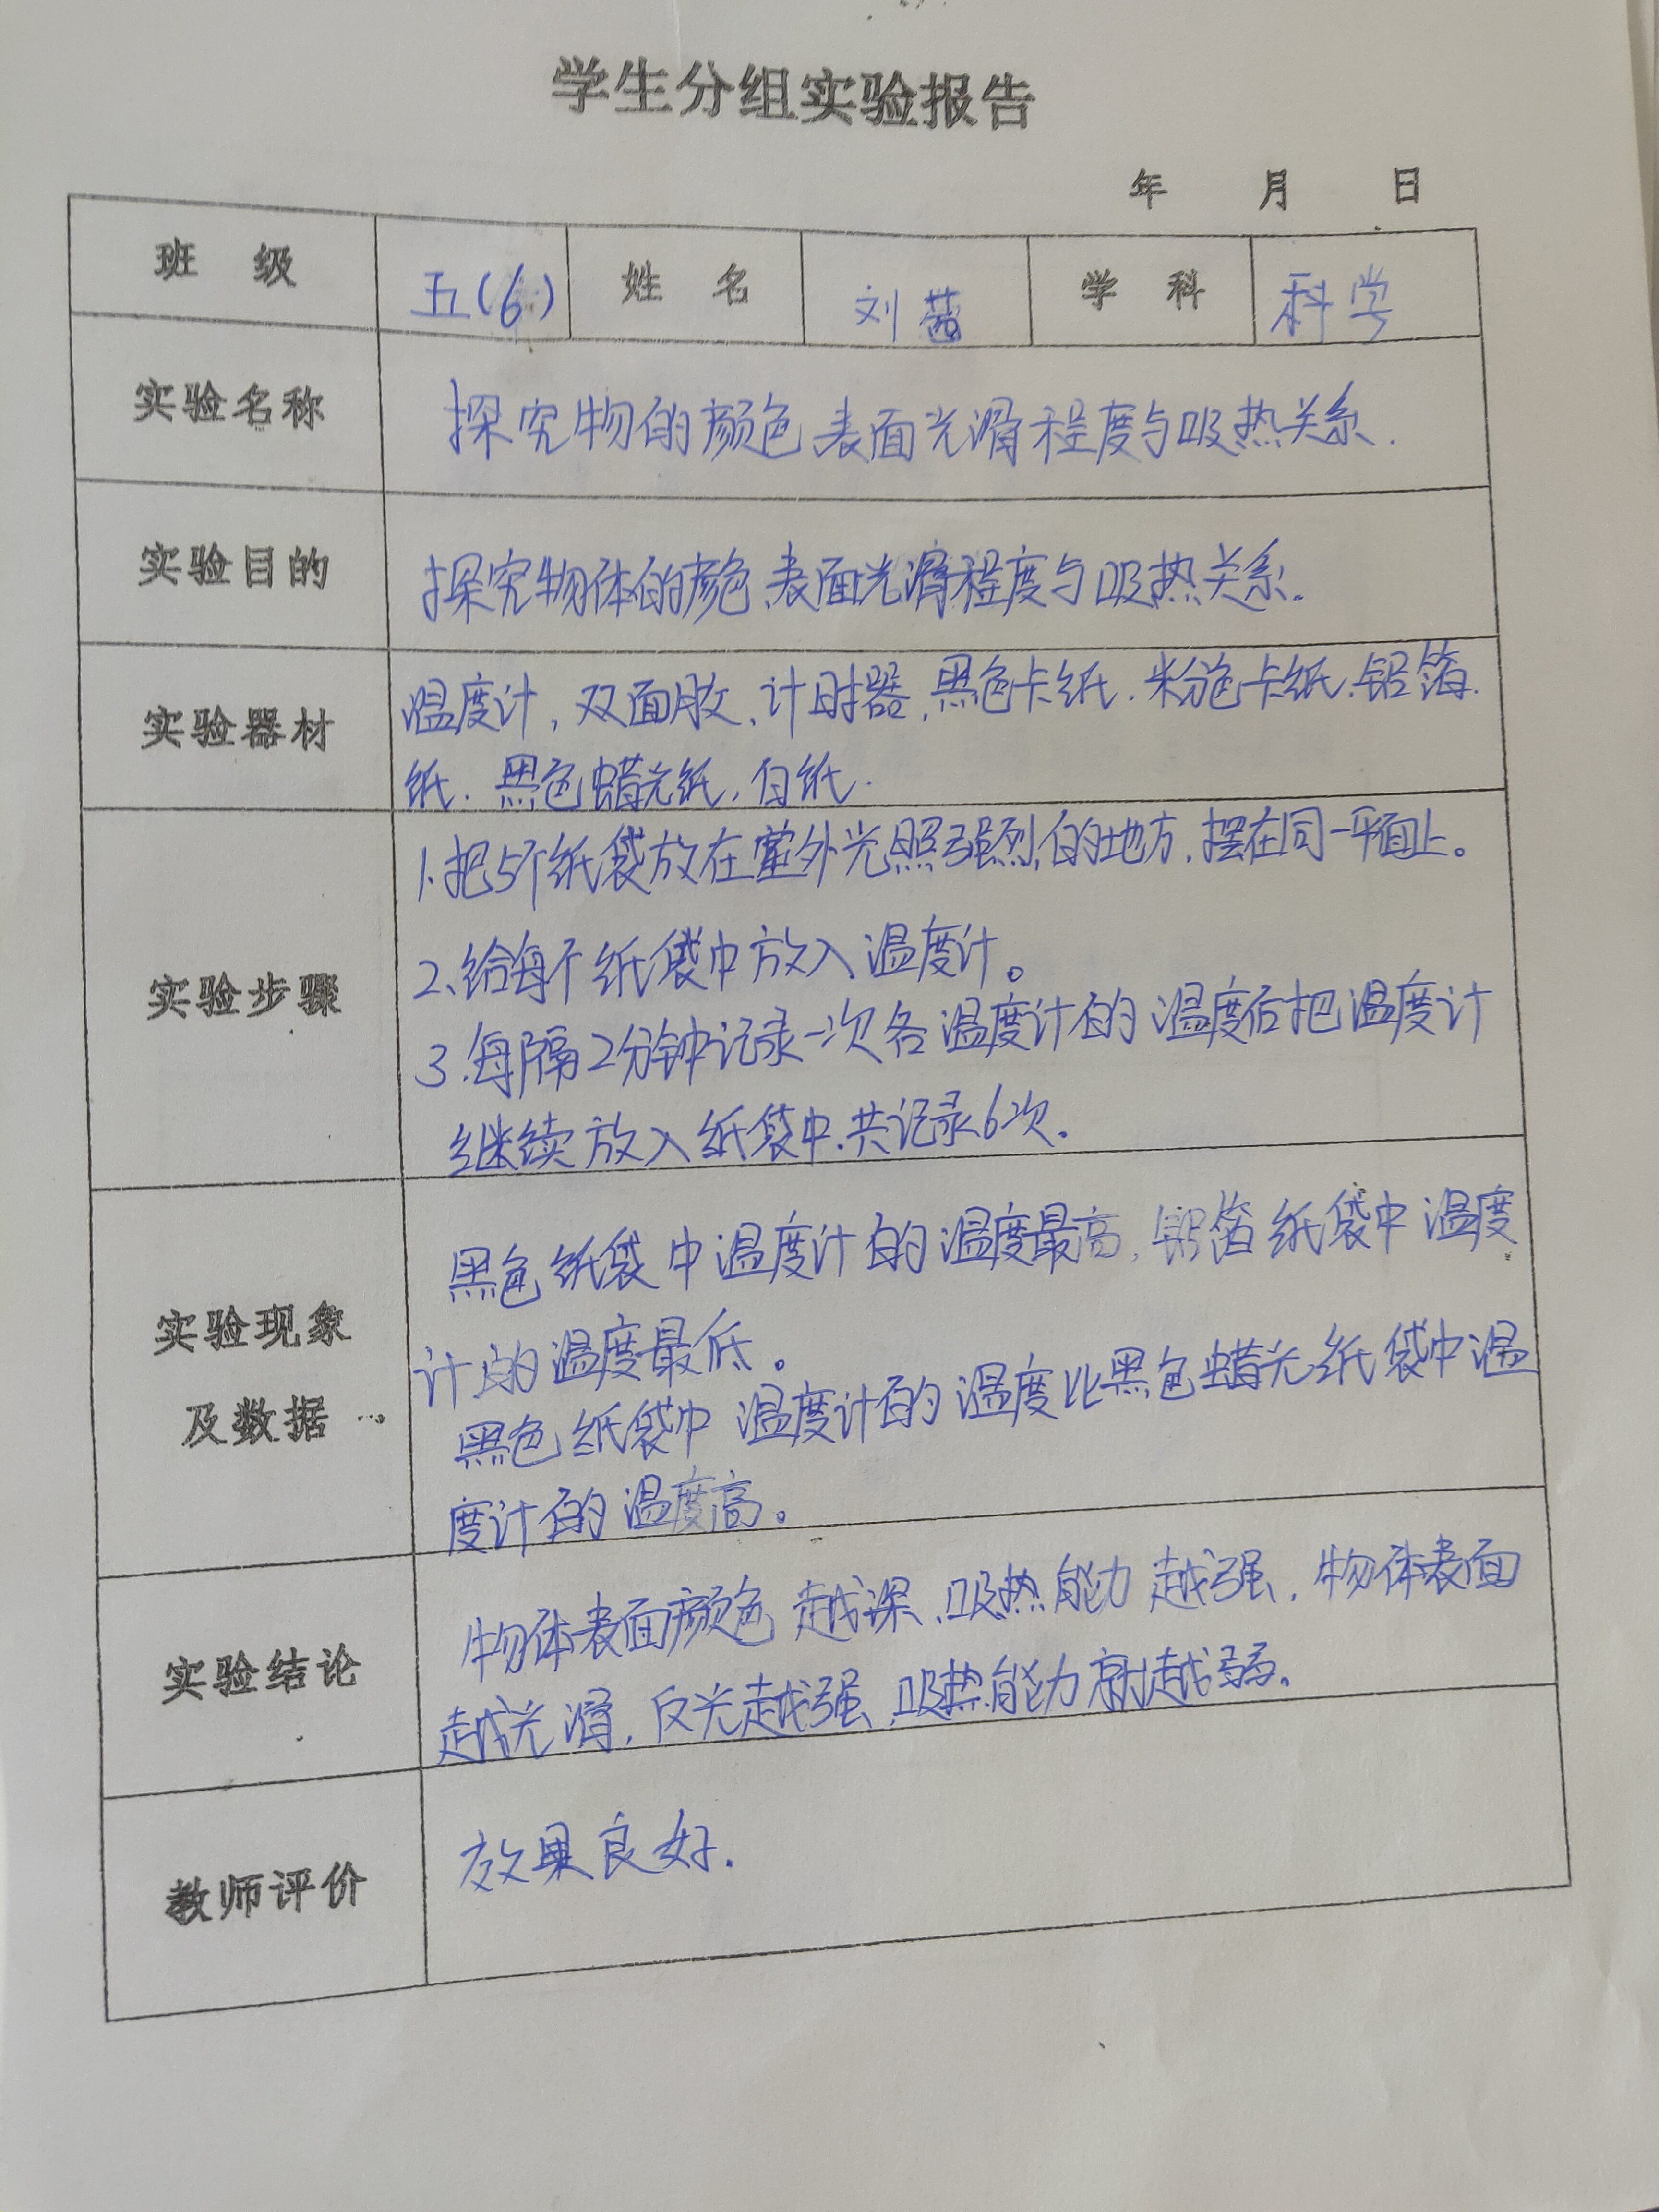 学生分组实验报告
年 月 日
班 级 五(6) 姓 名 刘茜 学 科 科学
实验名称 探究物的颜色、表面光滑程度与吸热关系.
实验目的 探究物体的颜色、表面光滑程度与吸热关系.
实验器材 温度计,双面胶、计时器、黑色卡纸.粉色卡纸.铝箔
纸.黑色蜡光纸,白纸.
实验步骤
1、把5个纸袋放在室外光照强烈的地方,摆在同一平面上。
2、给每个纸袋中放入温度计。
3.每隔2分钟记录一次各温度计的温度后把温度计
继续放入纸袋中.共记录6次.
实验现象
及数据
黑色纸袋中温度计的温度最高,铝箔纸袋中温度
计的温度最低。
黑色纸袋中温度计的温度比黑色蜡光纸袋中温
度计的温度高。
实验结论
物体表面颜色越深、吸热能力越强,物体表面
越光滑,反光越强,吸热能力就越弱。
教师评价 效果良好.